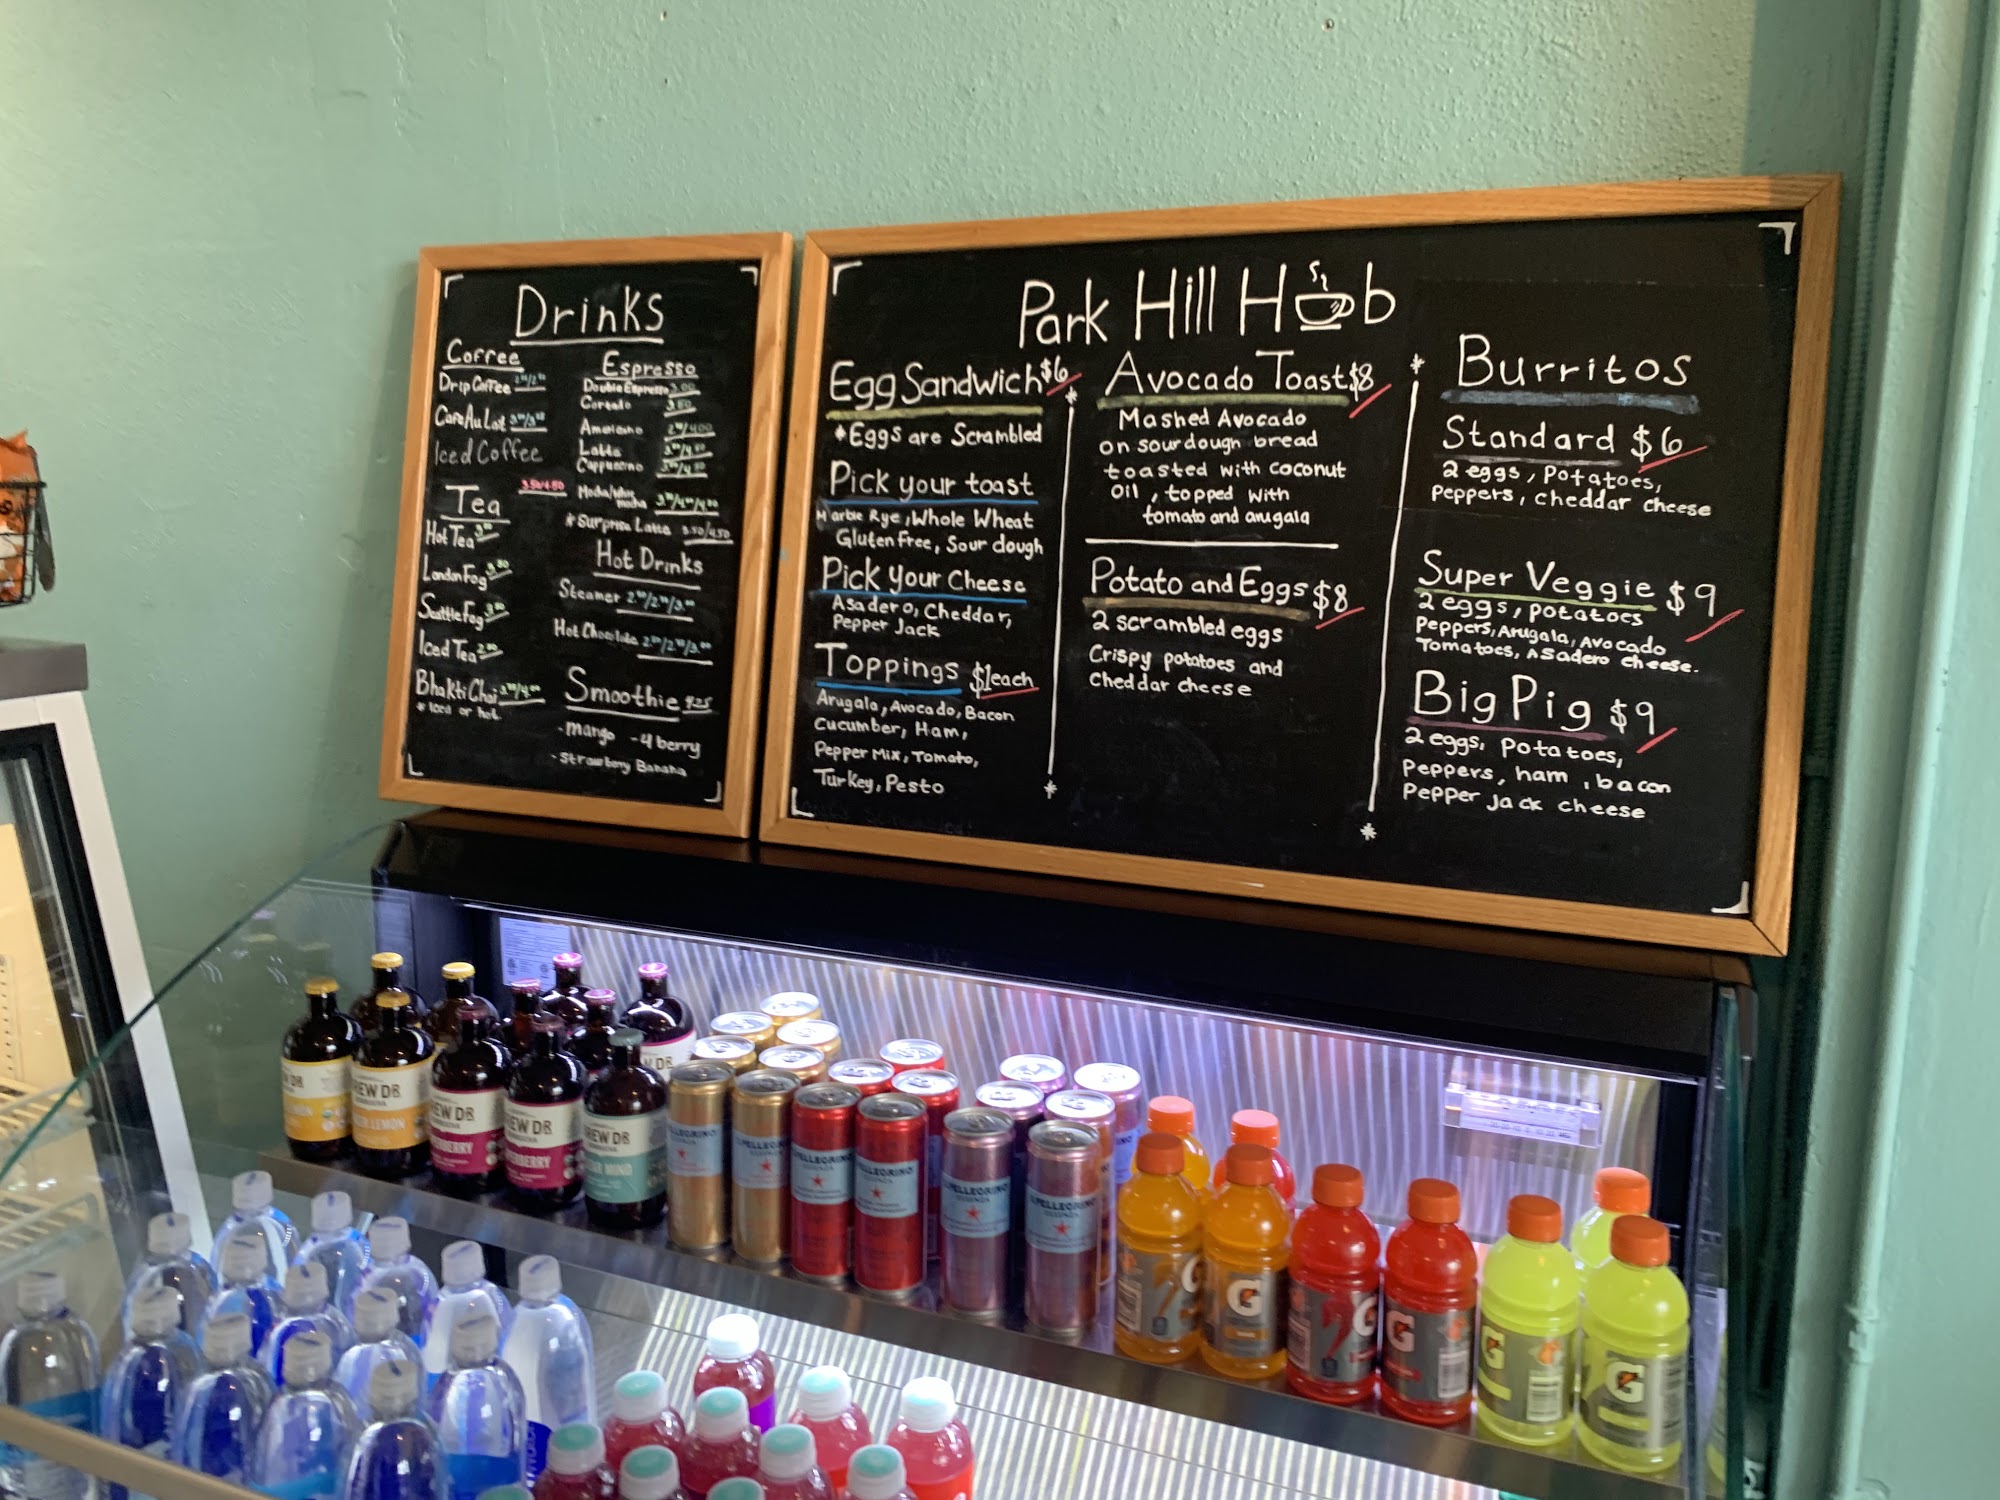 Drinks
Coffee
Drip Coffee
Cafe Au Lait
Iced Coffee
3.50/4.50
Tea
Hot Tea
London Fog 3.50
Seattle Fog
Iced Tea
Bhakti Chai
* Iced or hot
Espresso
Double Espresso 3.00
Cortado 3.50
Americano
Latte
Cappuccino
Mocha/White mocha
*Surprise Latte 3.50/4.50
Hot Drinks
Steamer
Hot Chocolate
Smoothie
-mango -4 berry
-Strawberry Banana
Park Hill Hub
Egg Sandwich $6
*Eggs are Scrambled
Pick your toast
Marble Rye, Whole Wheat
Gluten Free, Sour dough
Pick your Cheese
Asadero, Cheddar,
Pepper Jack
Toppings $1each
Arugala, Avocado, Bacon
Cucumber, Ham,
Pepper Mix, Tomato,
Turkey, Pesto
Avocado Toast $8
Mashed Avocado
on sourdough bread
toasted with coconut
oil, topped with
tomato and arugala
Potato and Eggs $8
2 scrambled eggs
Crispy potatoes and
Cheddar cheese
Burritos
Standard $6
2 eggs, Potatoes,
Peppers, cheddar cheese
Super Veggie $9
2 eggs, potatoes
Peppers, Arugala, Avocado
Tomatoes, Asadero cheese.
Big Pig $9
2 eggs, potatoes,
Peppers, ham, bacon
Pepper jack cheese
REW DR
EW DR
REW DR
REW DR
LEMON
PELLEGRINO
ESSENZA
S.PELLEGRINO
ESSENZA
G
G
G
G